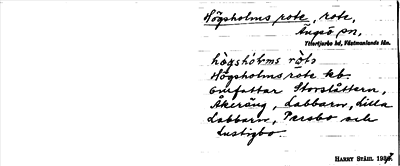 Högsholms rote, rote,
Ängsö sn,
Yttertjurbo hd, Västmanlands län.
högshólms ròtə
Högsholms rote kb.
omfattar Storslåttern,
Åkeräng, Labbarn, Lilla
Labbarn, Persbo och
Lustigbo.
HARRY STÅHL 1935.